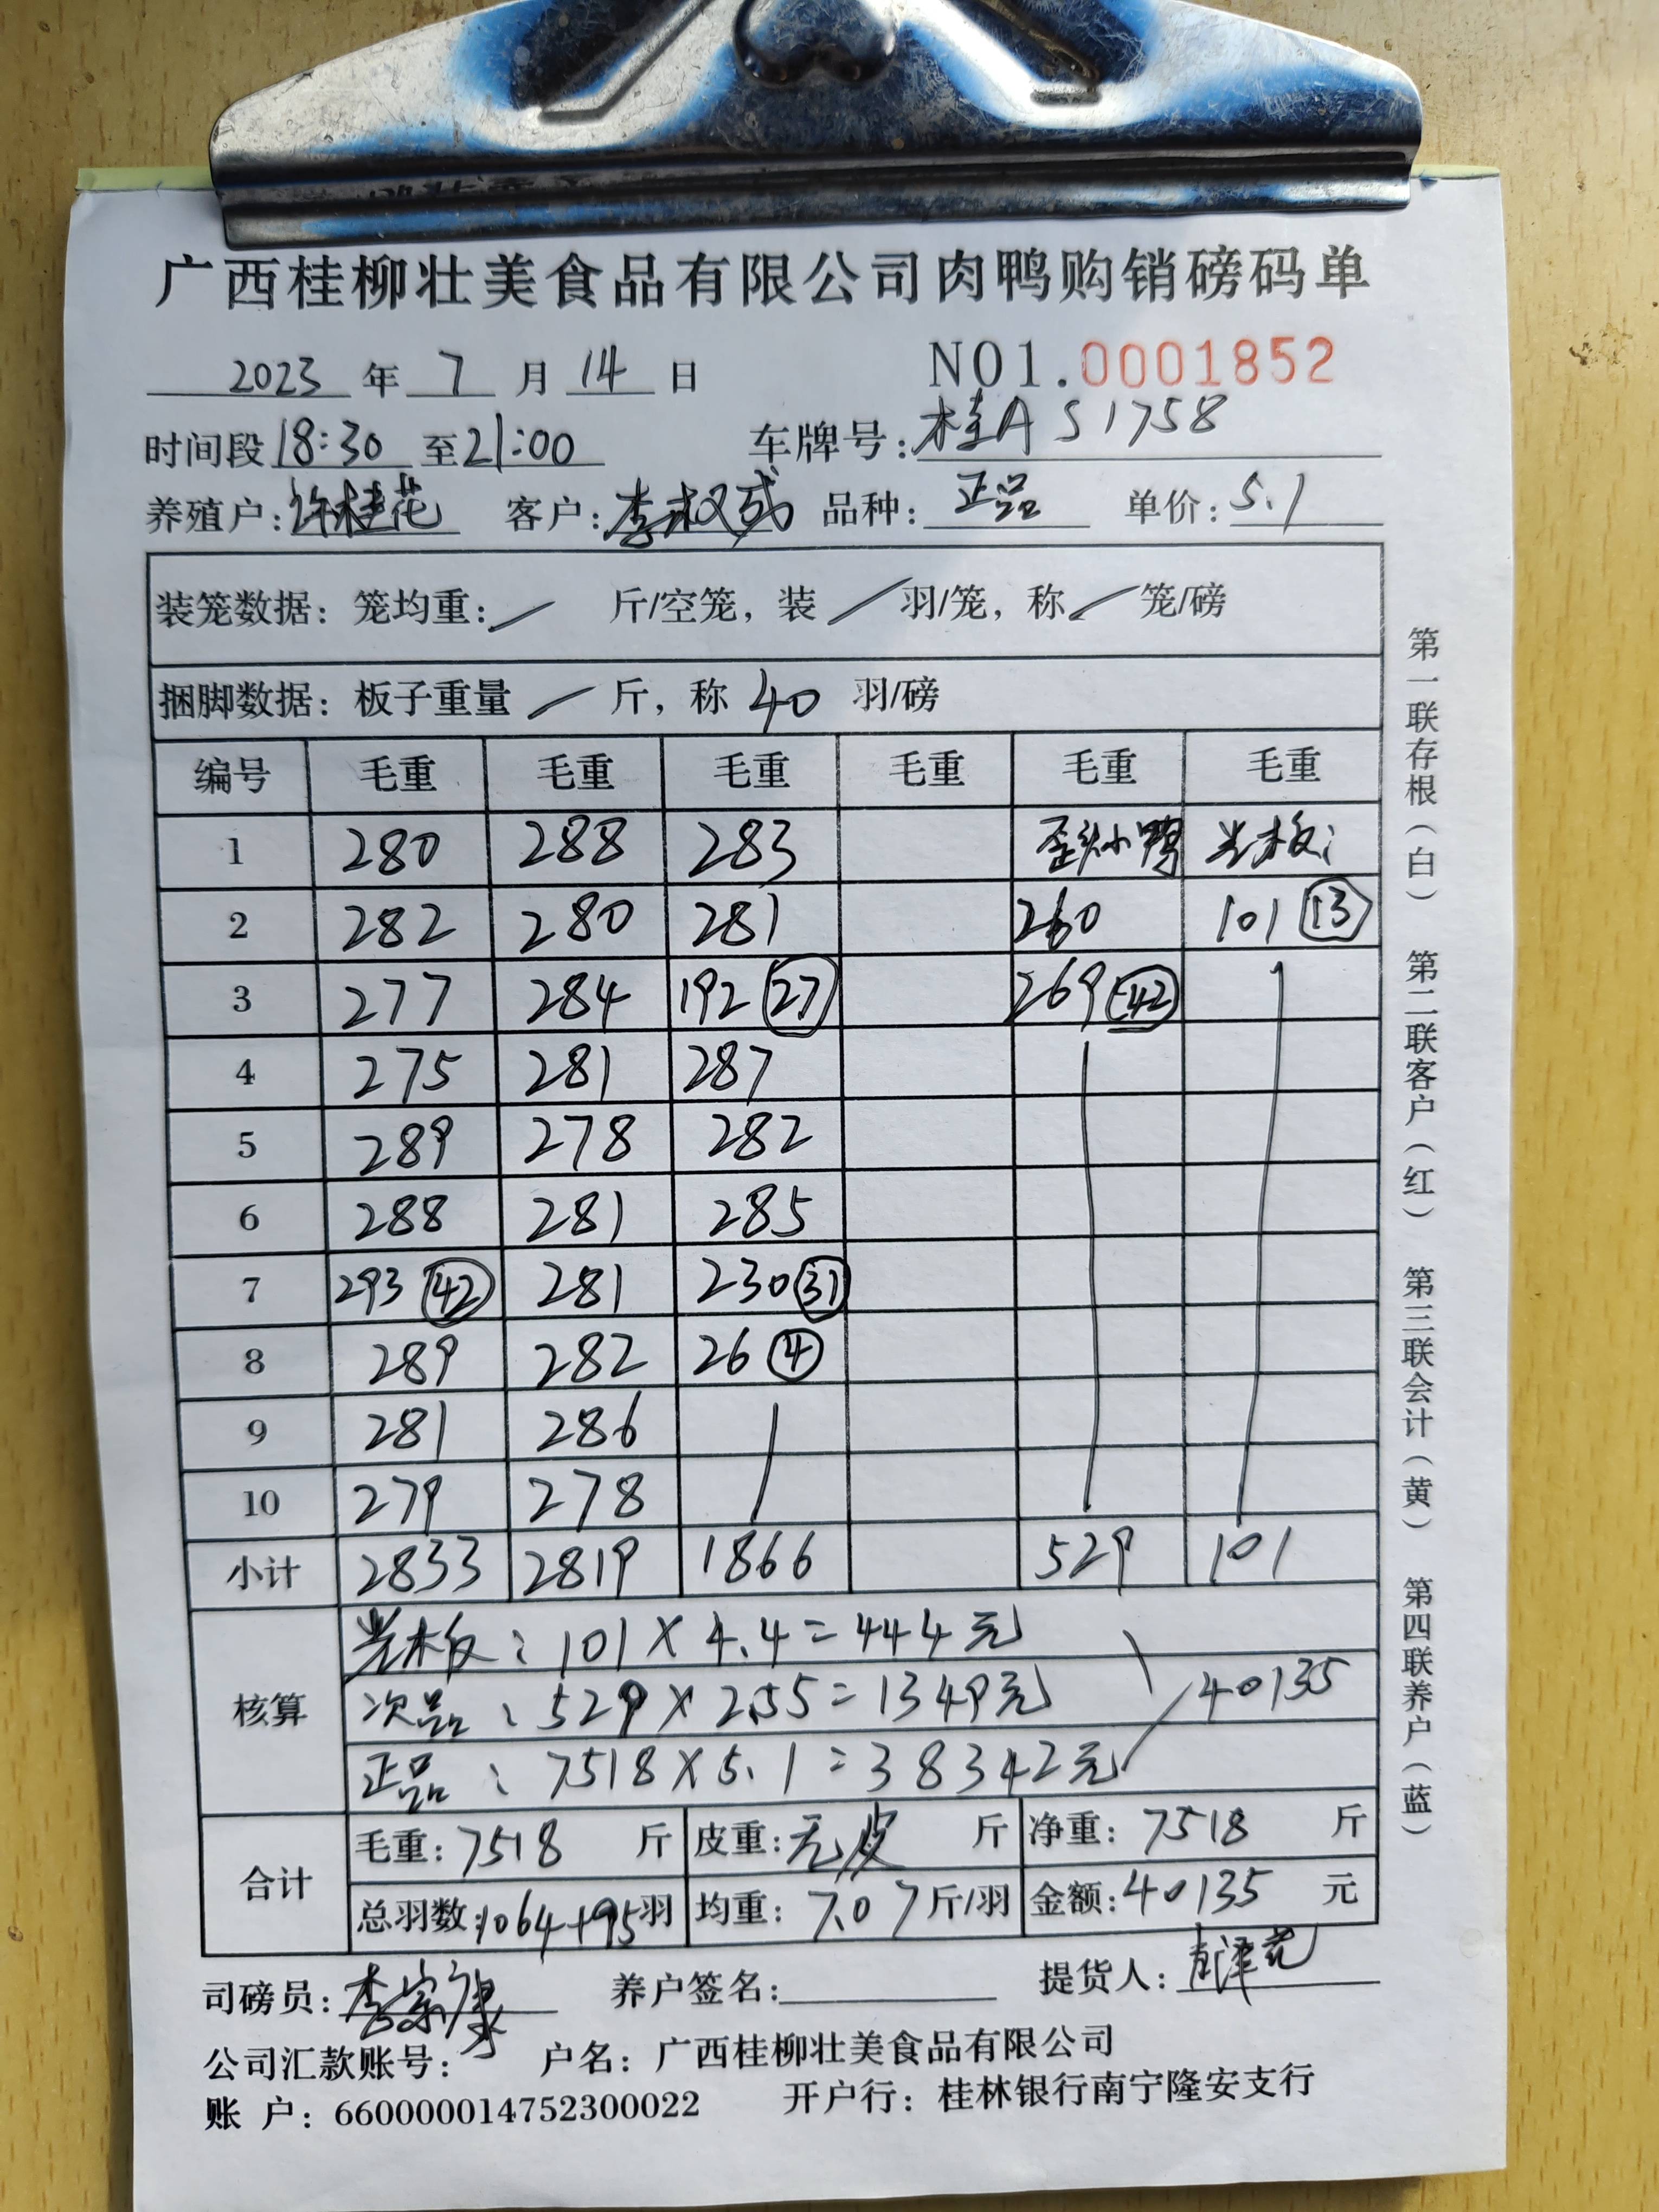 广西桂柳壮美食品有限公司肉鸭购销磅码单
2023 年 7 月 14 日 NO1.0001852
时间段 18:30 至 21:00 车牌号: 桂A S1758
养殖户: 许桂花 客户: 李权成 品种: 正品 单价: 5.1
装笼数据: 笼均重: / 斤/空笼, 装 / 羽/笼, 称 / 笼/磅
捆脚数据: 板子重量 / 斤, 称 40 羽/磅
编号 毛重 毛重 毛重 毛重 毛重 毛重
1 280 288 283 歪头小鸭 光板:
2 282 280 281 260 101 (13)
3 277 284 192 (27) 269 (42)
4 275 281 287
5 289 278 282
6 288 281 285
7 293 (42) 281 230 (31)
8 289 282 26 (4)
9 281 286
10 279 278
小计 2833 2819 1866 529 101
核算
光板: 101×4.4=444元
次品: 529×2.55=1349元 40135
正品: 7518×5.1=38342元
合计
毛重: 7518 斤 皮重: 无皮 斤 净重: 7518 斤
总羽数: 1064+95 羽 均重: 7.07 斤/羽 金额: 40135 元
司磅员: 李宗康 养户签名: 提货人:
公司汇款账号: 户名: 广西桂柳壮美食品有限公司
账 户: 660000014752300022 开户行: 桂林银行南宁隆安支行
第一联存根(白) 第二联客户(红) 第三联会计(黄) 第四联养户(蓝)